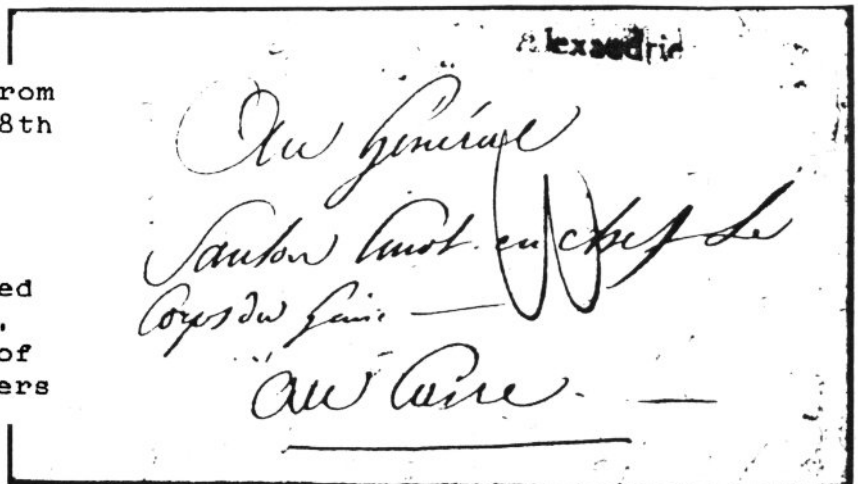 rom
8th
ed
,
of
ers
Alexandrie
Au Général
Sanson en chef Le
Corps du Génie —
Au Caire. —